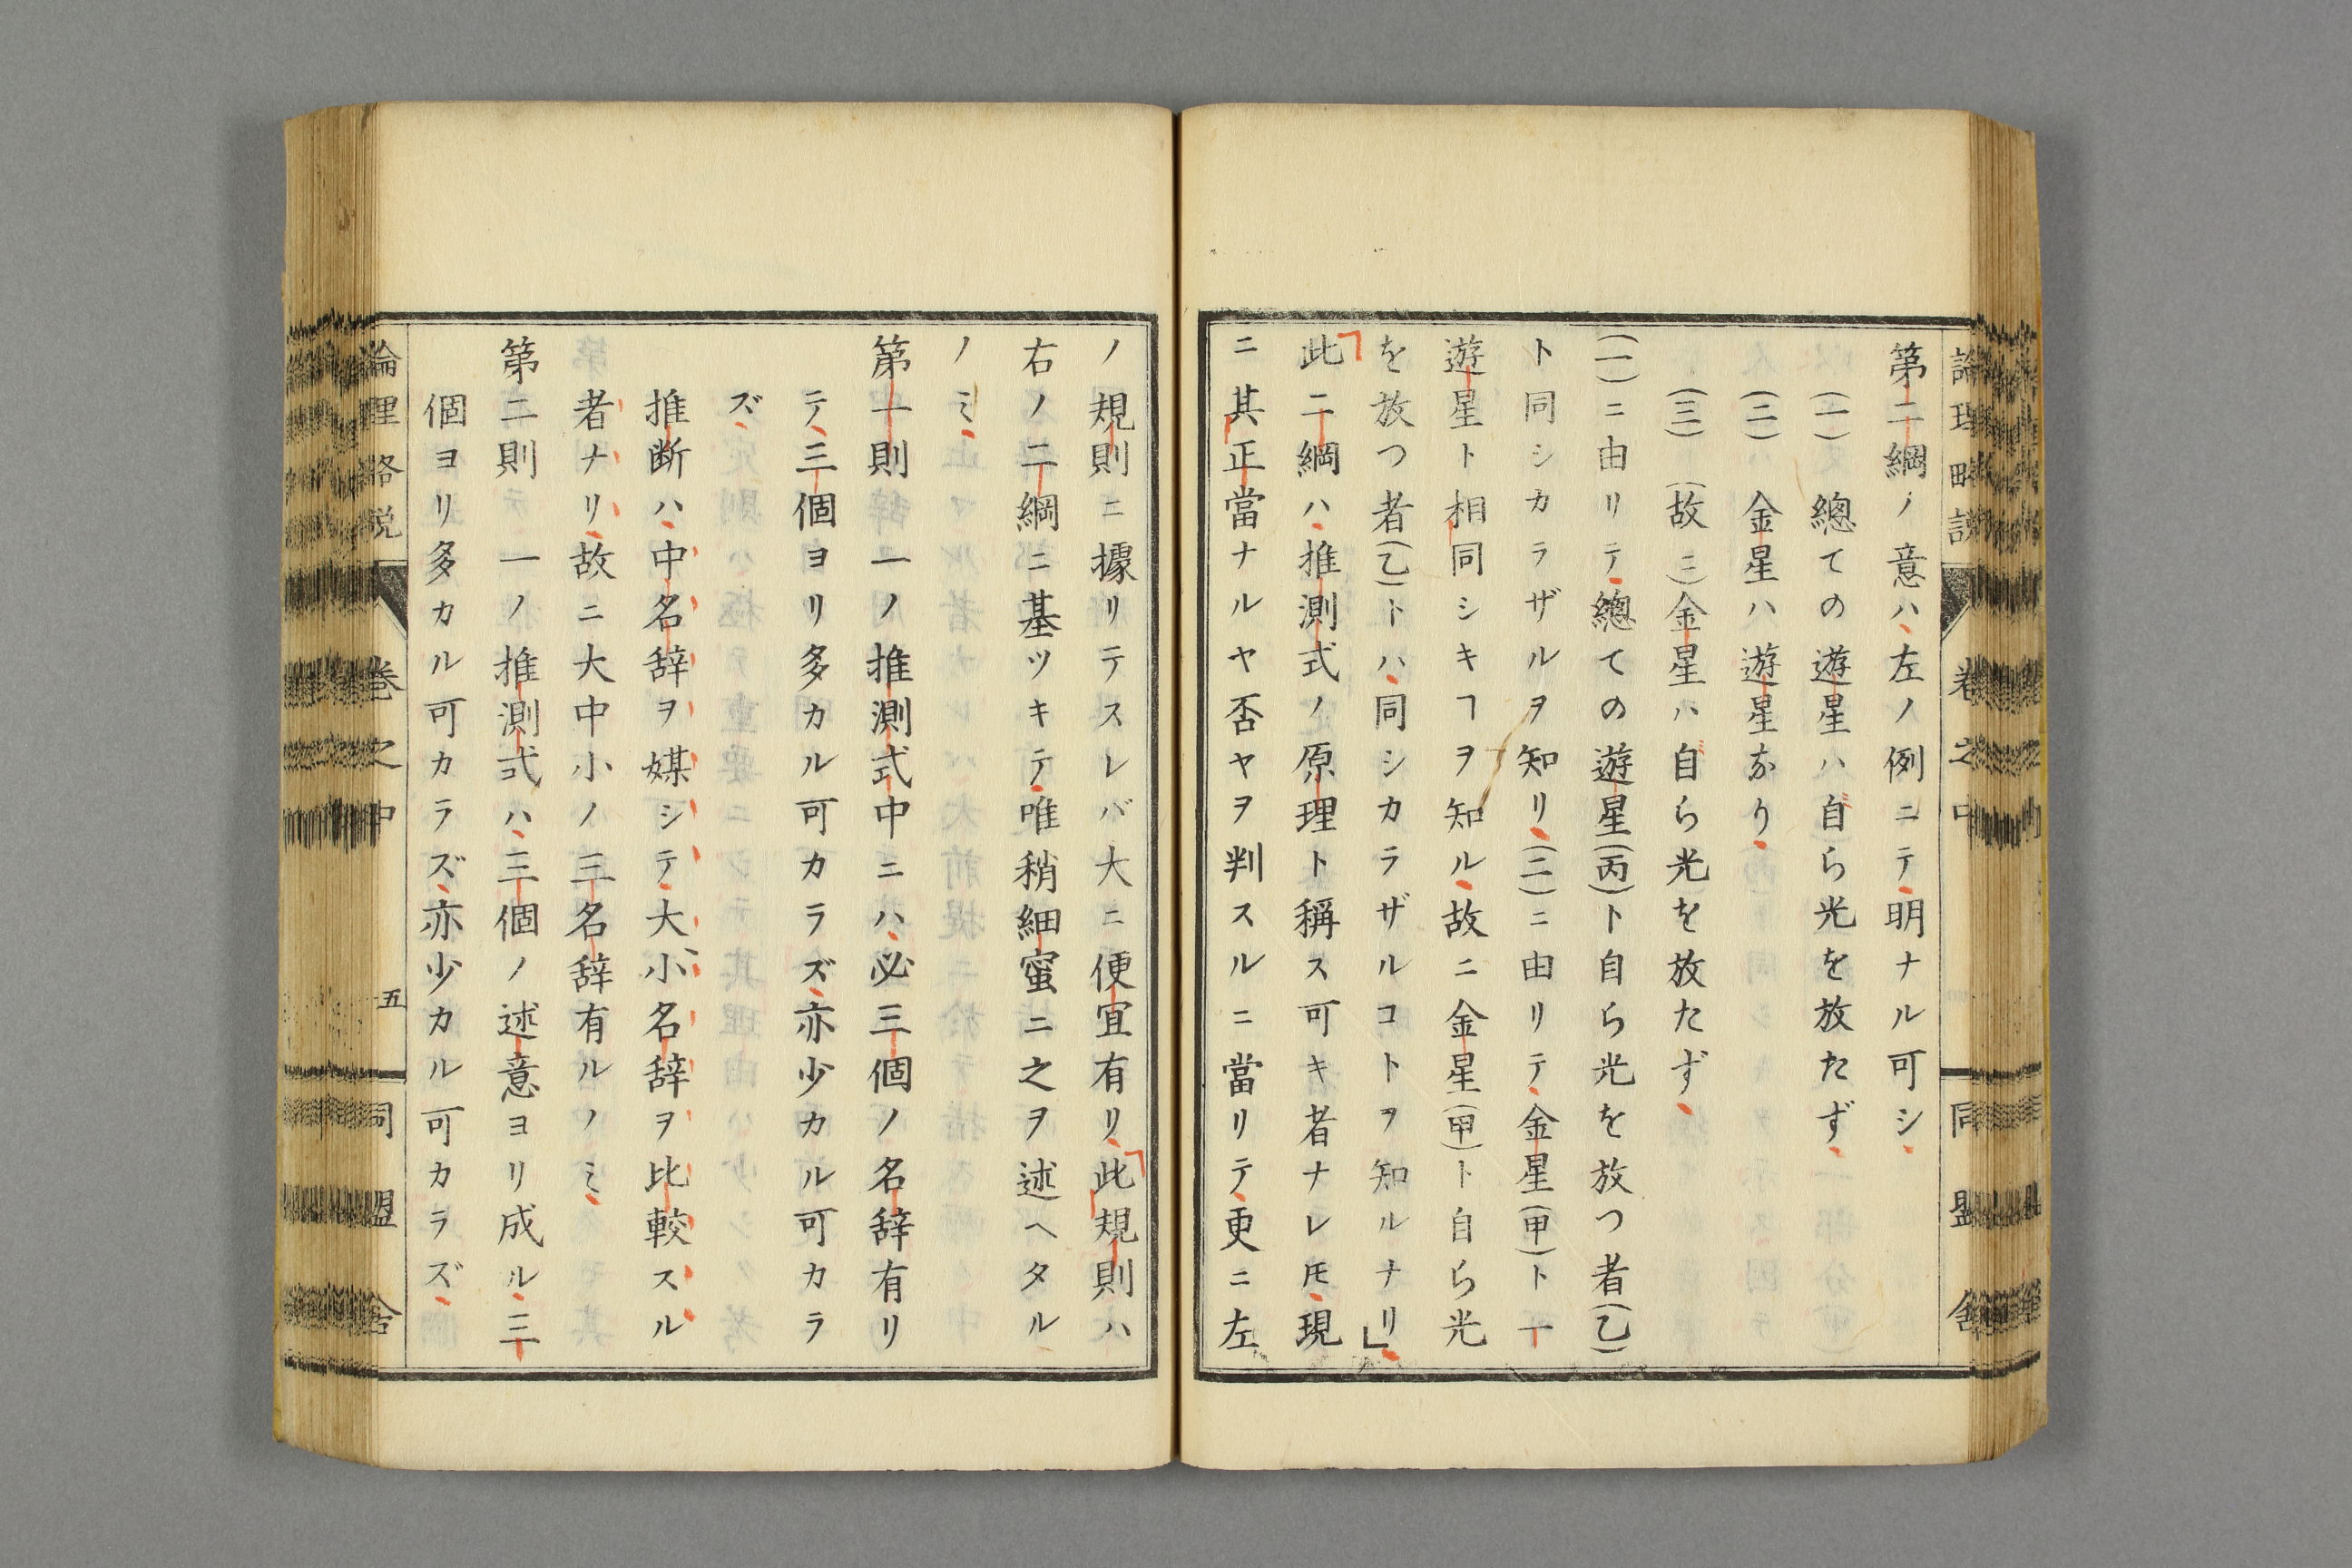 論理畧説 巻之中 同盟舎
第二綱ノ意ハ左ノ例ニテ明ナル可シ
(一) 總ての遊星ハ自ら光を放たず
(二) 金星ハ遊星なり
(三) (故ニ)金星ハ自ら光を放たず
(一)ニ由リテ總ての遊星(丙)ト自ら光を放つ者(乙)
ト同シカラザルヲ知リ(二)ニ由リテ金星(甲)ト一
遊星ト相同シキヿヲ知ル故ニ金星(甲)ト自ら光
を放つ者(乙)トハ同シカラザルコトヲ知ルナリ」
此二綱ハ推測式ノ原理ト稱ス可キ者ナレ𪜈現
ニ其正當ナルヤ否ヤヲ判スルニ當リテ更ニ左
ノ規則ニ據リテスレバ大ニ便宜有リ此規則ハ
右ノ二綱ニ基ツキテ唯稍細蜜ニ之ヲ述ヘタル
ノミ
第一則 一ノ推測式中ニハ必三個ノ名辞有リ
テ三個ヨリ多カル可カラズ亦少カル可カラ
ズ
推断ハ中名辞ヲ媒シテ大小名辞ヲ比較スル
者ナリ故ニ大中小ノ三名辞有ルノミ
第二則 一ノ推測式ハ三個ノ述意ヨリ成ル三
個ヨリ多カル可カラズ亦少カル可カラズ
論理畧説 巻之中 五 同盟舎